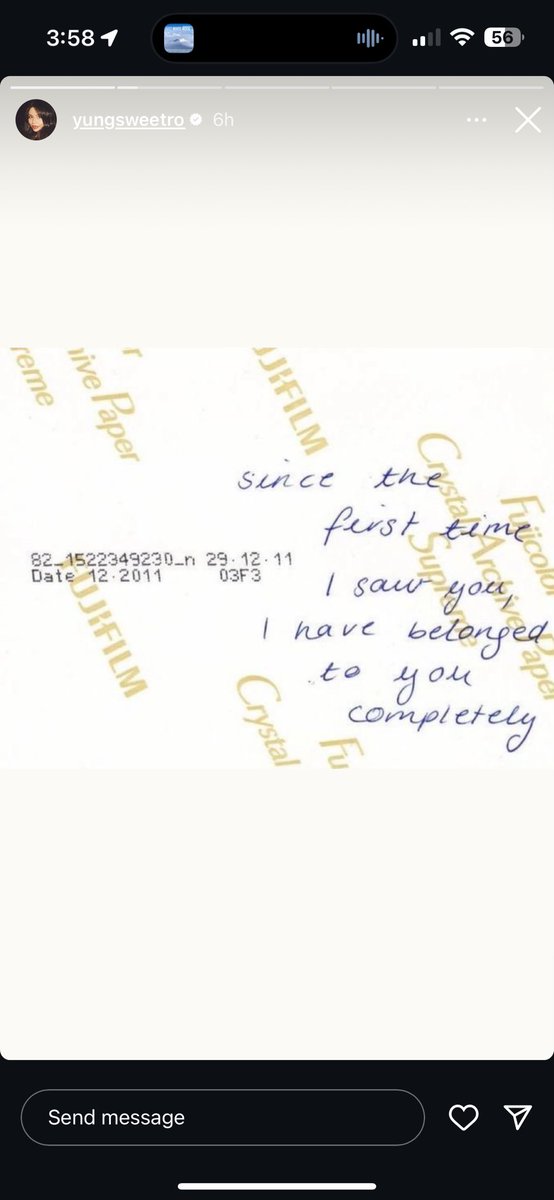 3:58
56
yungsweetro 6h
reme
hive Paper
FUJIFILM
Crystal Archive Paper
Supreme
Fujicolor
since the
first time
82_1522349230_n 29.12.11
Date 12.2011 03F3
I saw you,
I have belonged
to you
completely
FUJIFILM
Crystal
Fu
Send message